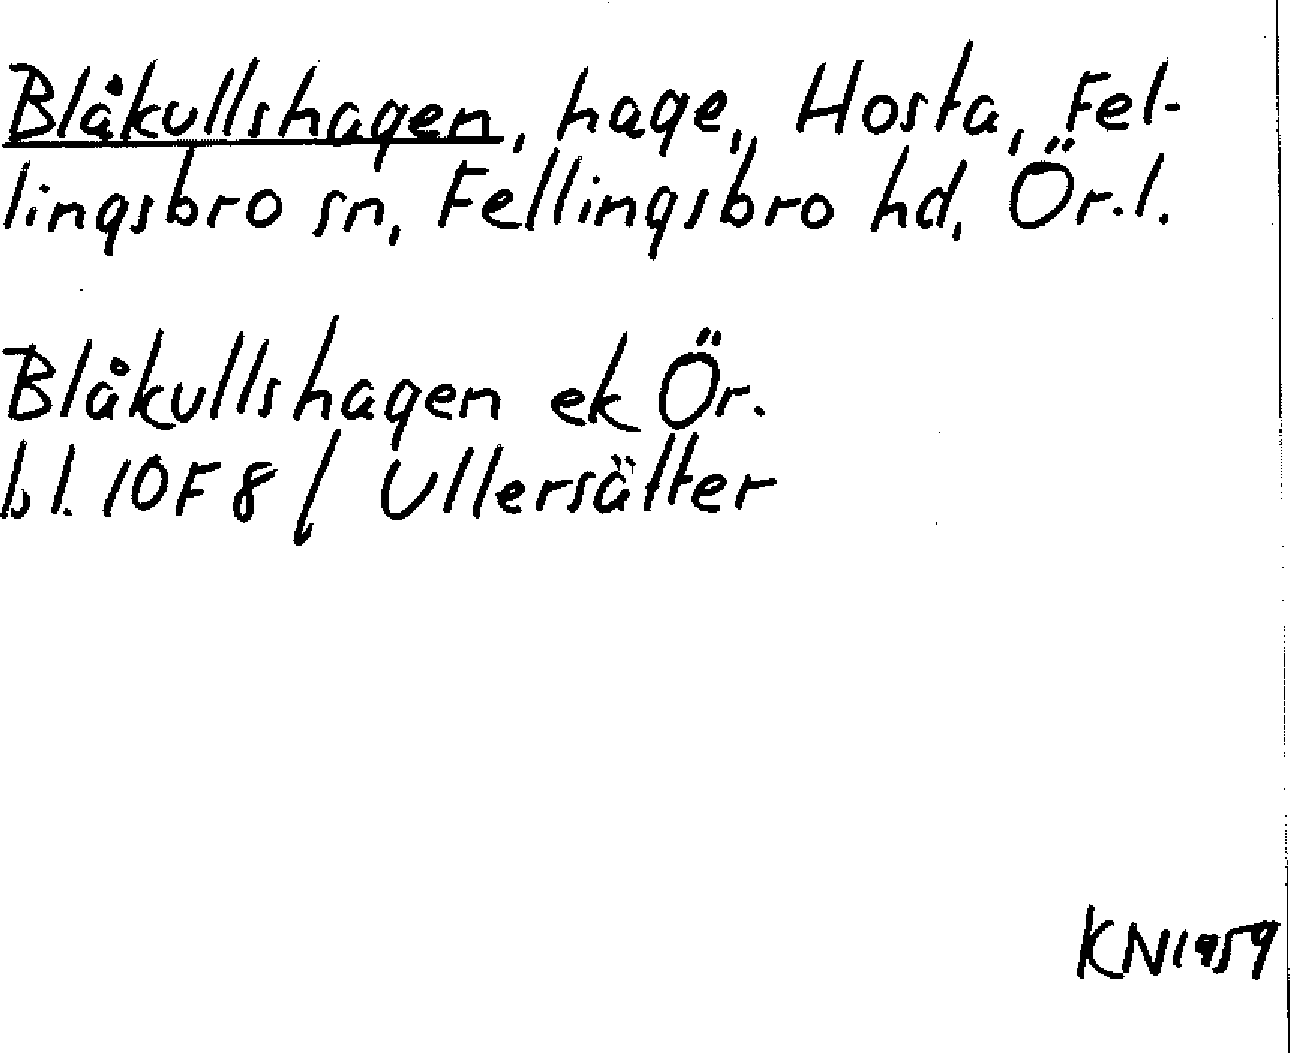 Blåkullshagen, hage, Hosta, Fel-
lingsbro sn, Fellingsbro hd, Ör.l.
Blåkullshagen ek Ör.
bl. 10F8 / Ullersätter
KN1959